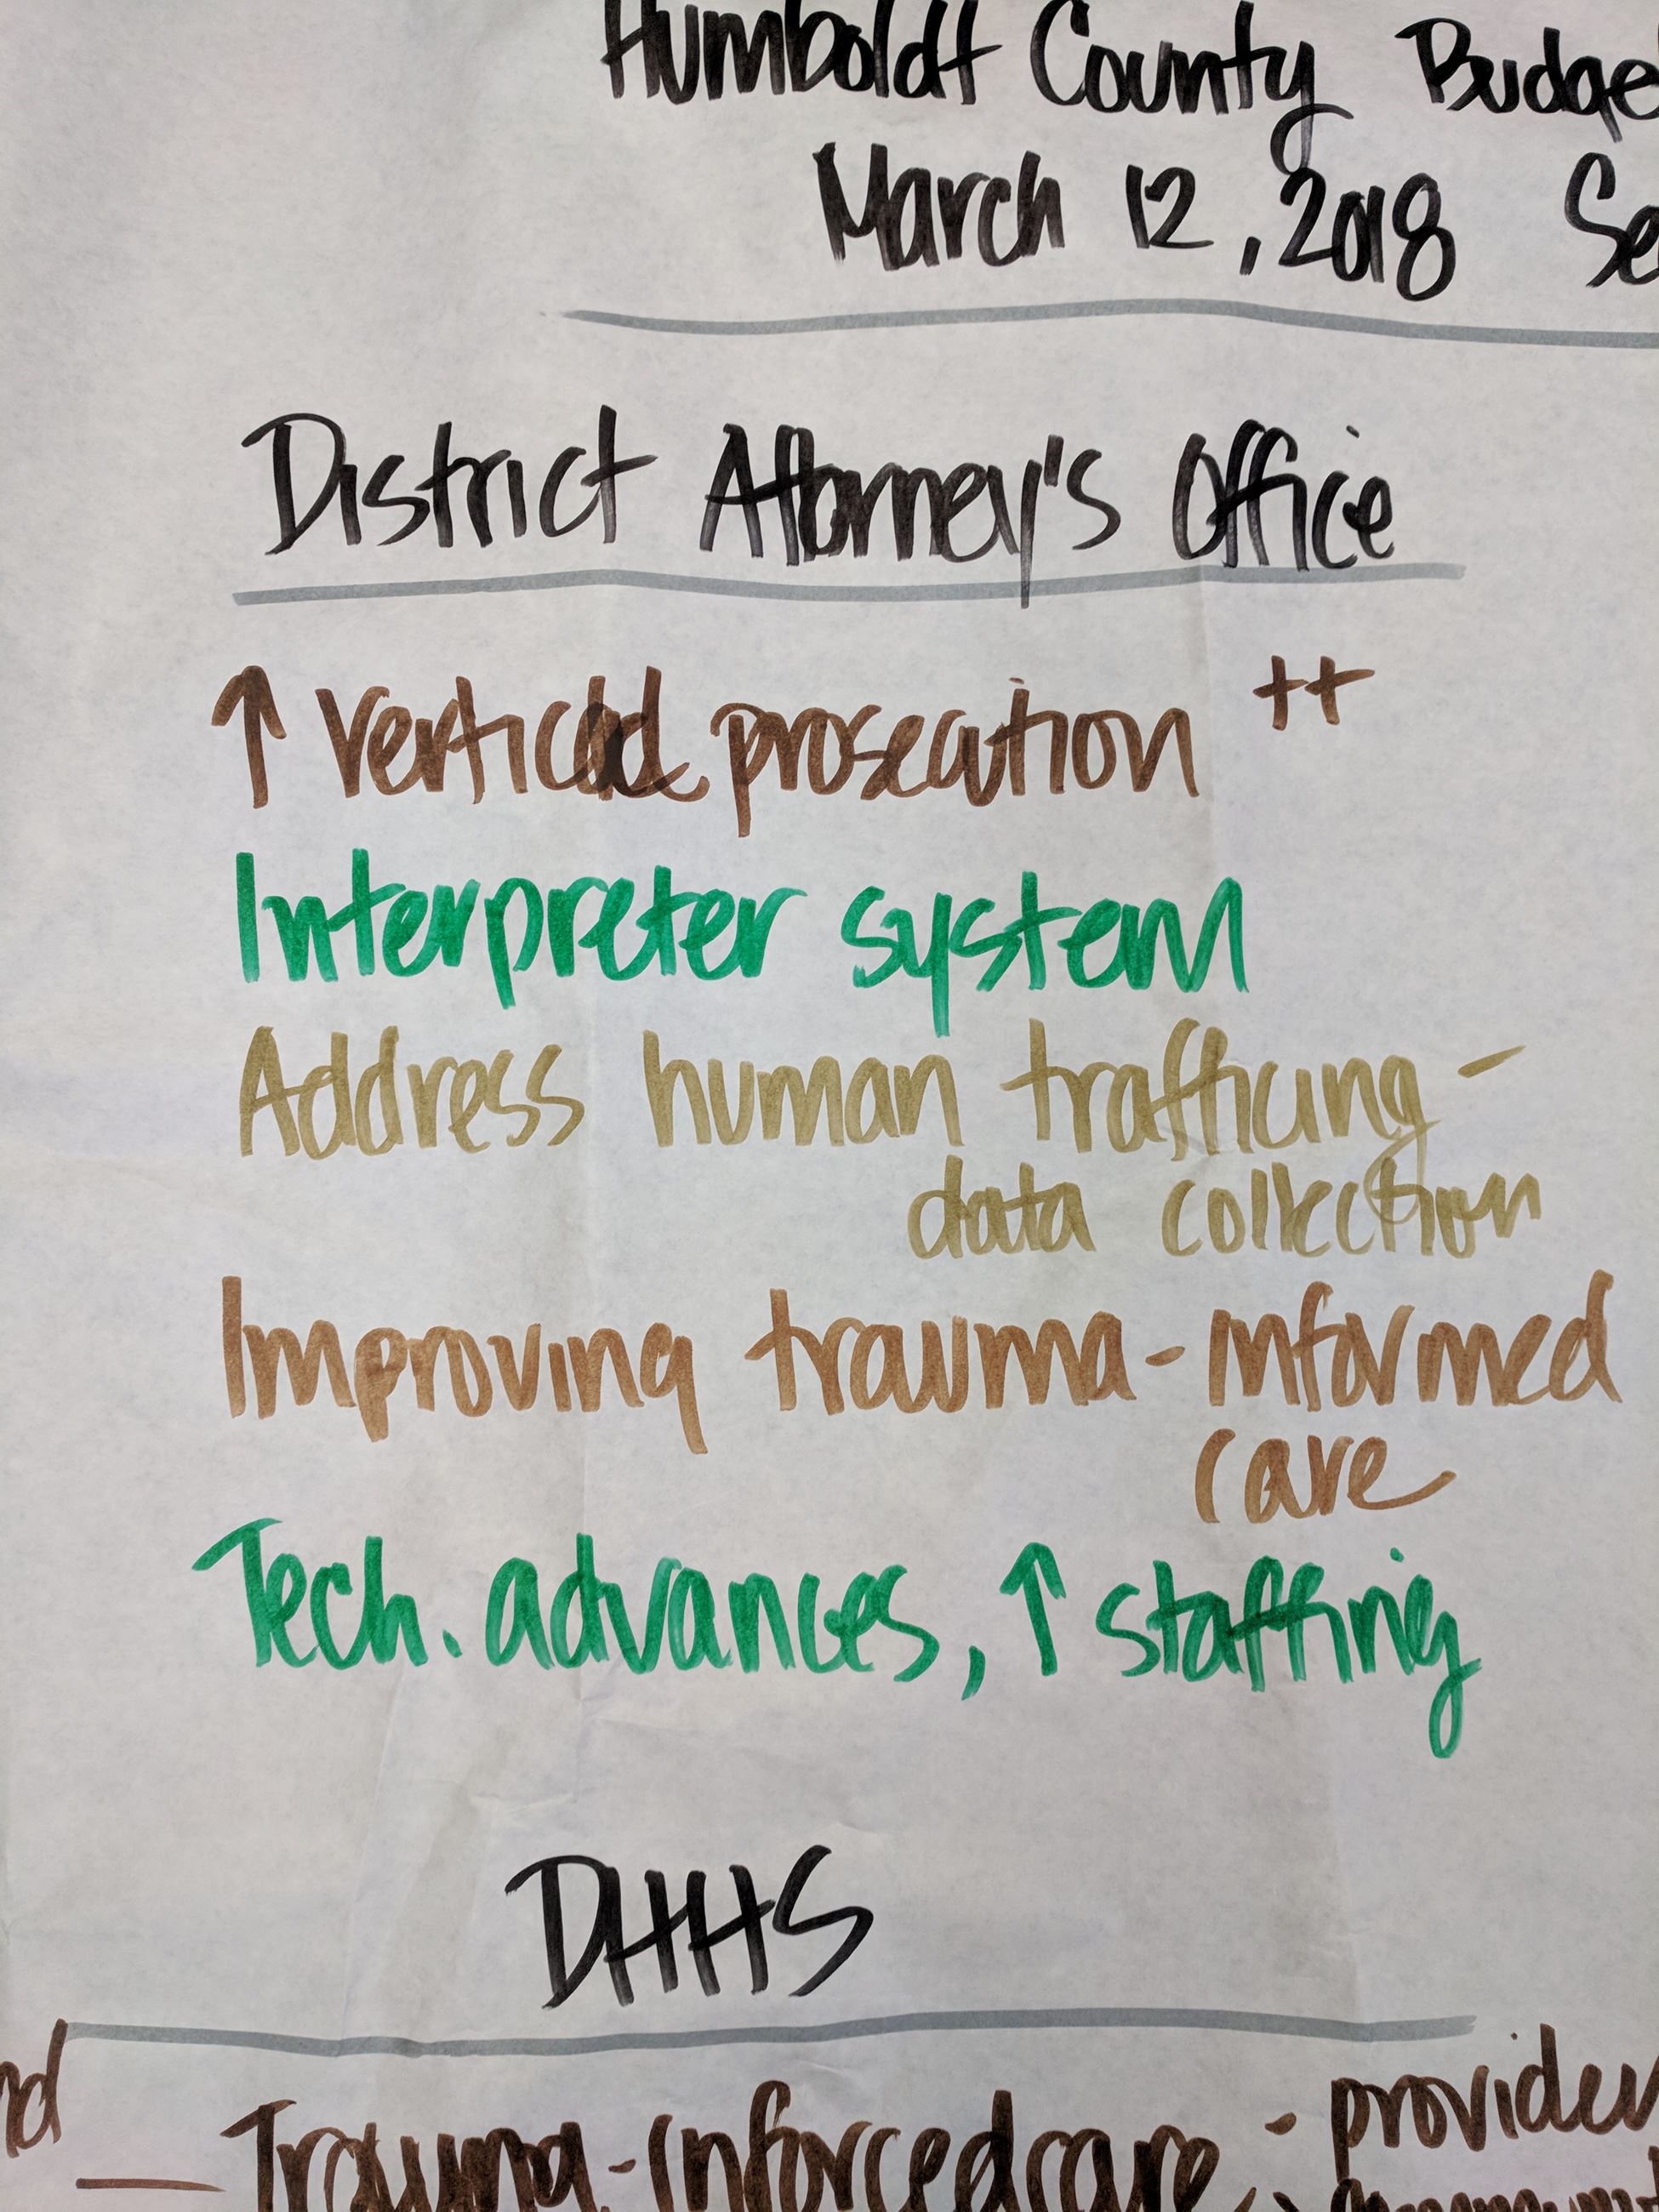 Humboldt County Budge
March 12, 2018 Se
District Attorney's Office
↑ Vertical prosecution ++
Interpreter system
Address human trafficing -
data collection
Improving trauma-informed
care
Tech. advances, ↑ staffing
DHHS
nd
Trauma-inforcedcare - provider